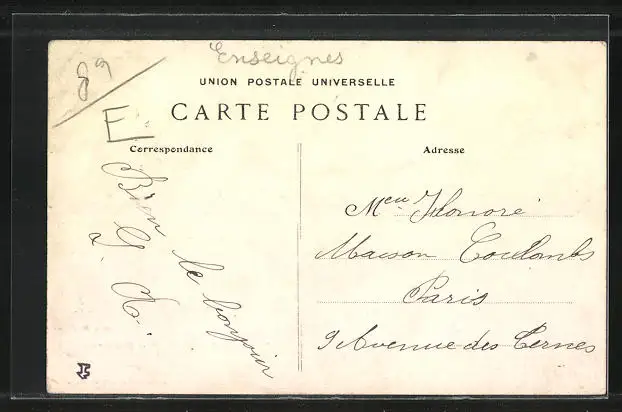 Enseignes
89
E
UNION POSTALE UNIVERSELLE
CARTE POSTALE
Correspondance
Adresse
Bien le bonjour
Meur Honoré
Maison Coulombs
Paris
9 Avenue des Ternes